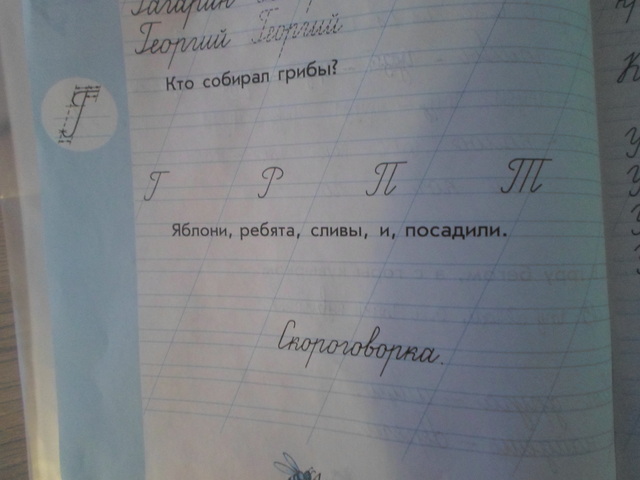 Гагарин
Георгий Георгий
Кто собирал грибы?
Г
Г Р П Т
Яблони, ребята, сливы, и, посадили.
Скороговорка.